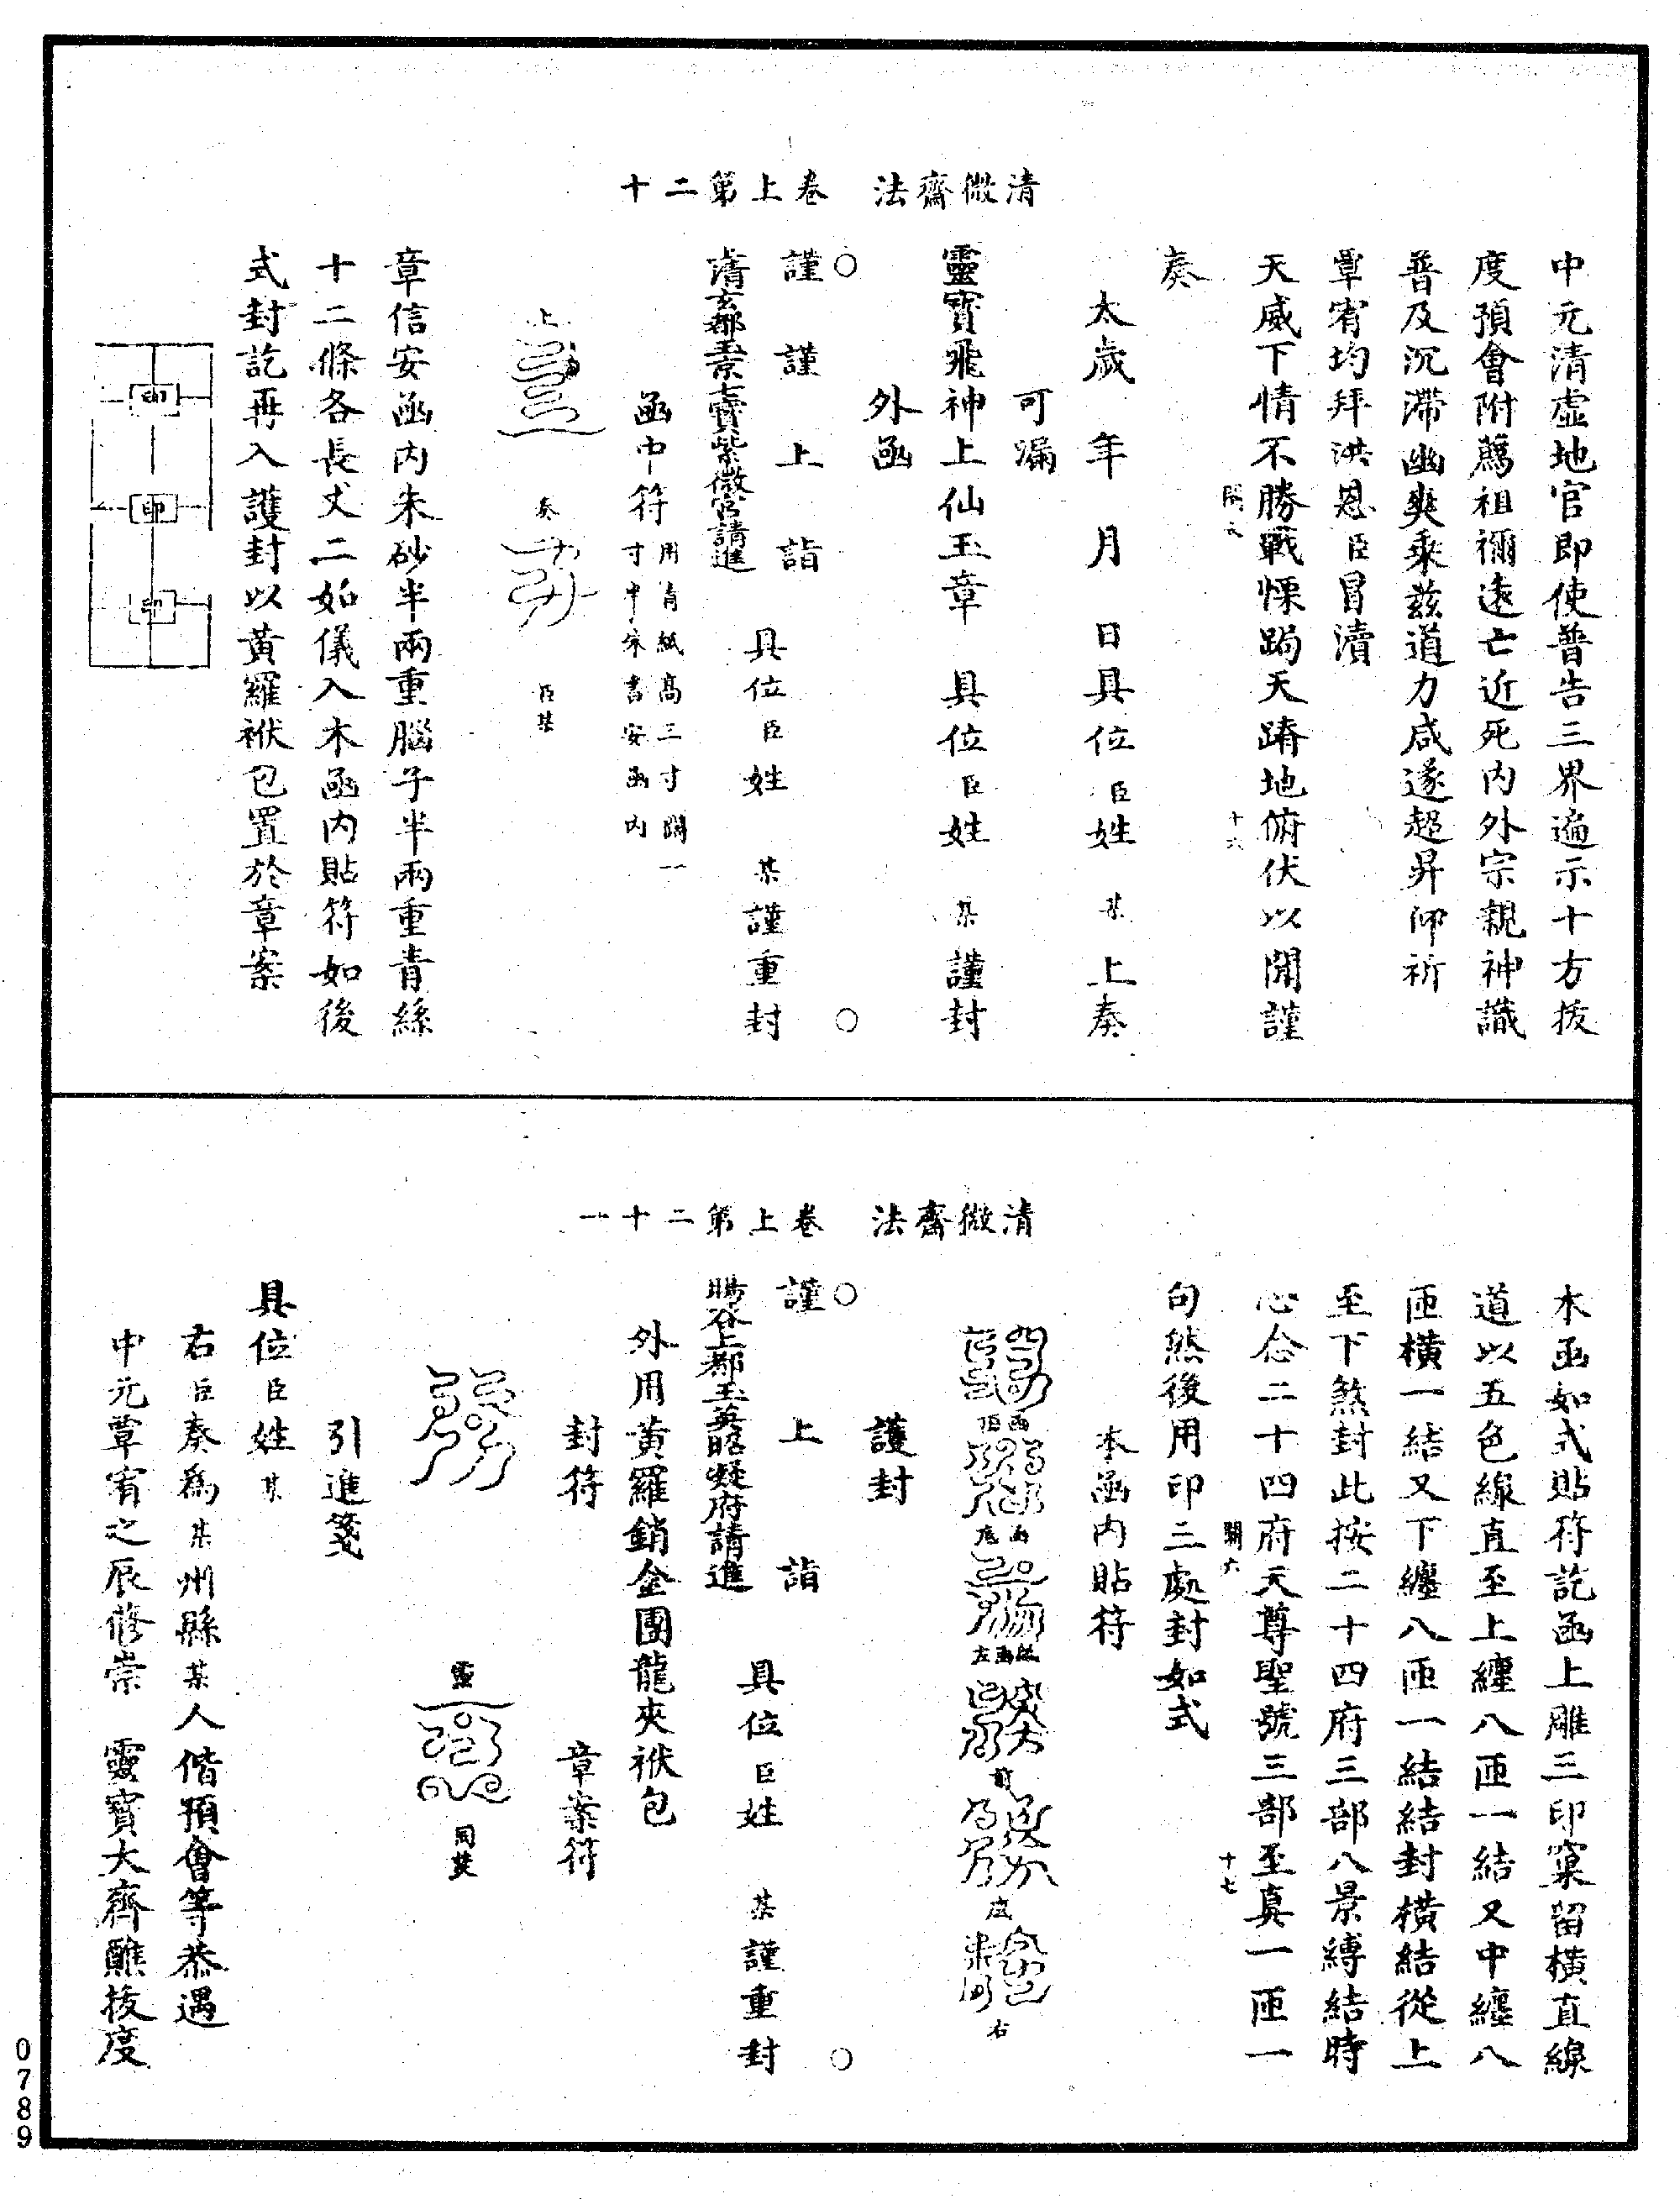 清微齋法　卷上第二十
中元清虛地官即使普告三界遍示十方拔
度預會附薦祖禰遠亡近死內外宗親神識
普及沉滯幽爽乘茲道力咸遂超昇仰祈
覃宥均拜洪恩臣冒瀆
天威下情不勝戰慄跼天蹐地俯伏以聞謹
十六
奏
太歲　年　月　日具位臣姓　某　上奏
可漏
靈寶飛神上仙玉章　具位臣姓　某謹封
外函
○　○
謹　謹　上　詣
清玄都玉京七寶紫微宮請進　具位臣姓　某謹重封
函中符用青紙高三寸闊一寸中朱書安函內
上　奏　臣某
章信安函內朱砂半兩重腦子半兩重青絲
十二條各長丈二如儀入木函內貼符如後
式封訖再入護封以黃羅袱包置於章案
印　印　印
清微齋法　卷上第二十一
木函如式貼符訖函上雕三印窠留橫直線
道以五色線直至上纏八匝一結又中纏八
匝橫一結又下纏八匝一結結封橫結從上
至下煞封此按二十四府三部八景縛結時
心念二十四府天尊聖號三部至真一匝一
十七
句然後用印三處封如式
本函內貼符
右
護封
○　○
謹　上　詣
暘谷上都玉英昭凝府請進　具位臣姓　某謹重封
外用黃羅銷金團龍夾袱包
封符　章案符
靈
引進箋
具位臣姓某
右臣奏為某州縣某人偕預會等恭遇
中元覃宥之辰修崇　靈寶大齋醮拔度
0789